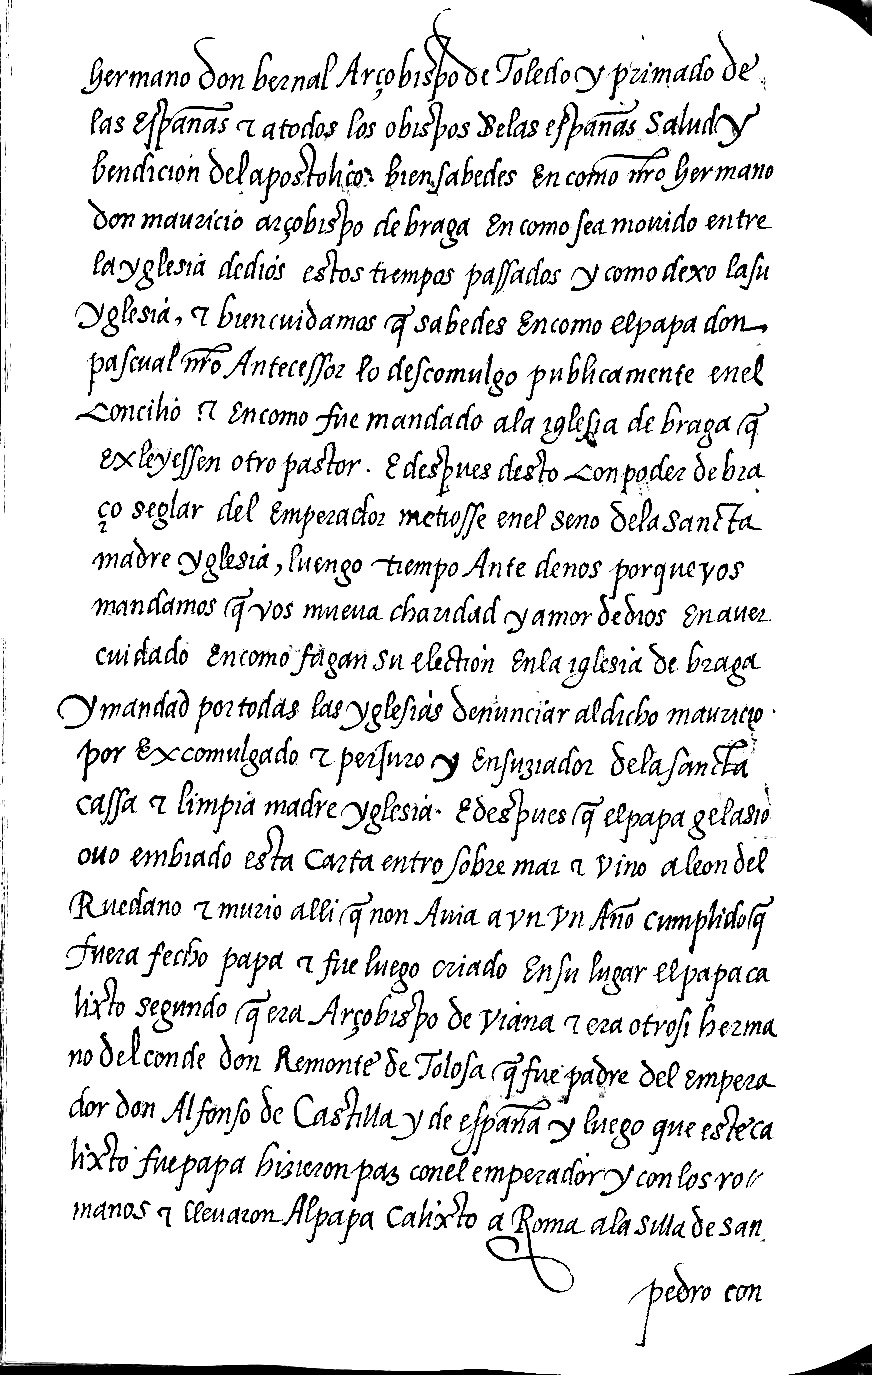 hermano don bernal Arçobispo de Toledo y primado de
las Españas τ a todos los obispos delas españas salud y
bendicion del apostolico. bien sabedes En como nr̃o hermano
don mauricio arçobispo de braga En como sea mouido entre
la yglesia de dios estos tiempos passados y como dexo la su
yglesia, τ bien cuidamos q̃ sabedes En como el papa don
pascual nr̃o Antecessor lo descomulgo publicamente en el
Concilio τ En como fue mandado ala iglesia de braga q̃
Exleyessen otro pastor. E despues desto Con poder de bra
ço seglar del Emperador metiosse en el seno dela sancta
madre yglesia, luengo tiempo Ante de nos porque vos
mandamos q̃ vos mueua charidad y amor de dios En auer
cuidado En como fagan su election En la iglesia de braga
y mandad por todas las yglesias denunciar al dicho mauricio
por Excomulgado τ perjuro y Ensuziador dela sancta
cassa τ limpia madre yglesia. E despues q̃ el papa gelasio
ouo embiado esta Carta entro sobre mar τ vino a leon del
Ruedano τ murio alli q̃ non Auia a vn vn Año cumplido q̃
fuera fecho papa τ fue luego criado En su lugar el papa ca
lixto segundo q̃ era Arçobispo de viana τ era otrosi herma
no del conde don Remonte de Tolosa q̃ fue padre del empera
dor don Alfonso de Castilla y de españa y luego que este ca
lixto fue papa hizieron paz con el emperador y con los ro
manos τ lleuaron Al papa Calixto a Roma a la silla de san
pedro con